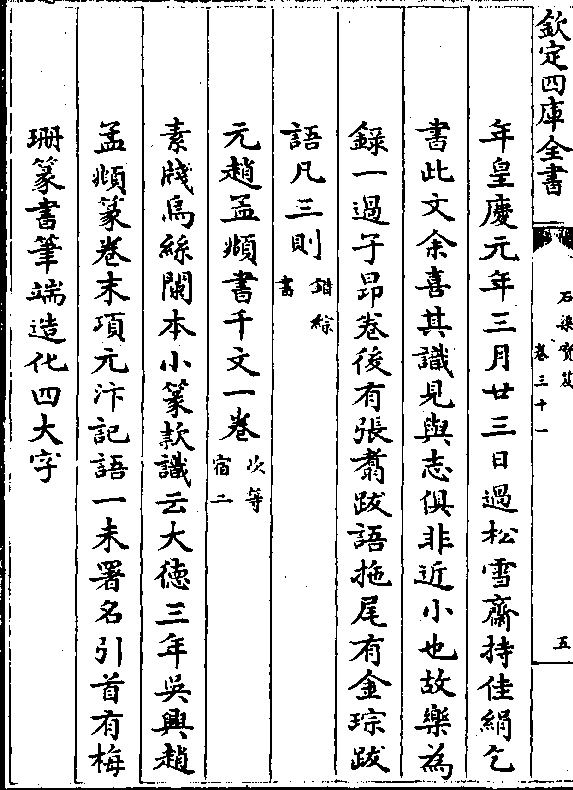 欽定四庫全書
石渠寳笈
卷三十一
五
年皇慶元年三月廿三日過松雪齋持佳絹乞
書此文余喜其識見與志俱非近小也故樂為
錄一過子昻卷後有張翥跋語拖尾有金琮跋
語凡三則
錯綜
書
元趙孟頫書千文一卷
次等
宿二
素牋烏絲闌本小篆款識云大德三年吳興趙
孟頫篆卷末項元汴記語一未署名引首有梅
珊篆書筆端造化四大字